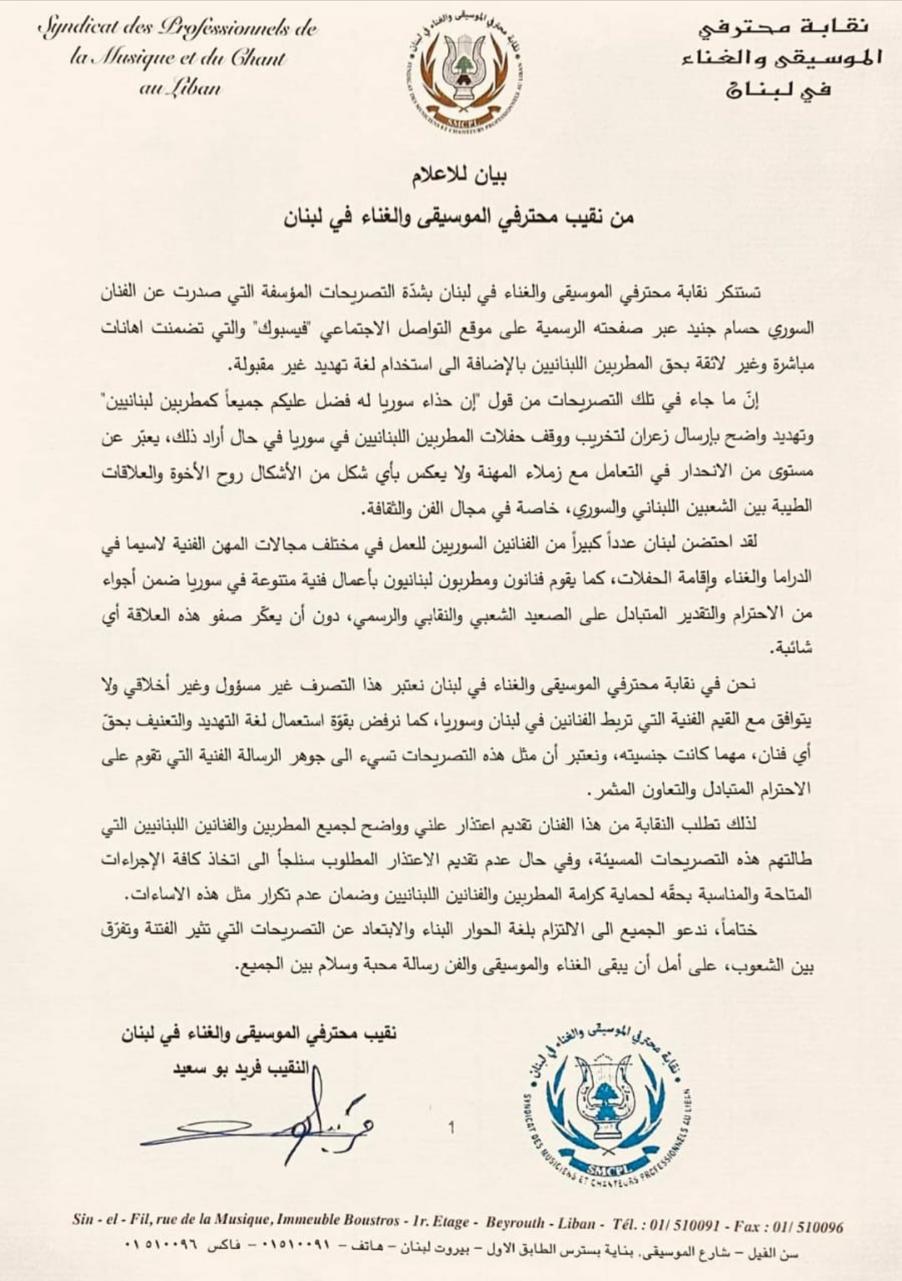 Syndicat des Professionnels de
la Musique et du Chant
au Liban
نقابة محترفي الموسيقى والغناء في لبنان
SYNDICAT DES MUSICIENS ET CHANTEURS PROFESSIONNELS AU LIBAN
SMCPL
نقابة محترفي
الموسيقى والغناء
في لبنان
بيان للاعلام
من نقيب محترفي الموسيقى والغناء في لبنان
تستنكر نقابة محترفي الموسيقى والغناء في لبنان بشدّة التصريحات المؤسفة التي صدرت عن الفنان
السوري حسام جنيد عبر صفحته الرسمية على موقع التواصل الاجتماعي "فيسبوك" والتي تضمنت اهانات
مباشرة وغير لائقة بحق المطربين اللبنانيين بالإضافة الى استخدام لغة تهديد غير مقبولة.
إنّ ما جاء في تلك التصريحات من قول "إن حذاء سوريا له فضل عليكم جميعاً كمطربين لبنانيين"
وتهديد واضح بإرسال زعران لتخريب ووقف حفلات المطربين اللبنانيين في سوريا في حال أراد ذلك، يعبّر عن
مستوى من الانحدار في التعامل مع زملاء المهنة ولا يعكس بأي شكل من الأشكال روح الأخوة والعلاقات
الطيبة بين الشعبين اللبناني والسوري، خاصة في مجال الفن والثقافة.
لقد احتضن لبنان عدداً كبيراً من الفنانين السوريين للعمل في مختلف مجالات المهن الفنية لاسيما في
الدراما والغناء وإقامة الحفلات، كما يقوم فنانون ومطربون لبنانيون بأعمال فنية متنوعة في سوريا ضمن أجواء
من الاحترام والتقدير المتبادل على الصعيد الشعبي والنقابي والرسمي، دون أن يعكّر صفو هذه العلاقة أي
شائبة.
نحن في نقابة محترفي الموسيقى والغناء في لبنان نعتبر هذا التصرف غير مسؤول وغير أخلاقي ولا
يتوافق مع القيم الفنية التي تربط الفنانين في لبنان وسوريا، كما نرفض بقوّة استعمال لغة التهديد والتعنيف بحقّ
أي فنان، مهما كانت جنسيته، ونعتبر أن مثل هذه التصريحات تسيء الى جوهر الرسالة الفنية التي تقوم على
الاحترام المتبادل والتعاون المثمر.
لذلك تطلب النقابة من هذا الفنان تقديم اعتذار علني وواضح لجميع المطربين والفنانين اللبنانيين التي
طالتهم هذه التصريحات المسيئة، وفي حال عدم تقديم الاعتذار المطلوب سنلجأ الى اتخاذ كافة الإجراءات
المتاحة والمناسبة بحقّه لحماية كرامة المطربين والفنانين اللبنانيين وضمان عدم تكرار مثل هذه الاساءات.
ختاماً، ندعو الجميع الى الالتزام بلغة الحوار البناء والابتعاد عن التصريحات التي تثير الفتنة وتفرّق
بين الشعوب، على أمل أن يبقى الغناء والموسيقى والفن رسالة محبة وسلام بين الجميع.
نقيب محترفي الموسيقى والغناء في لبنان
النقيب فريد بو سعيد
نقابة محترفي الموسيقى والغناء في لبنان
SYNDICAT DES MUSICIENS ET CHANTEURS PROFESSIONNELS AU LIBAN
SMCPL
1
Sin - el - Fil, rue de la Musique, Immeuble Boustros - 1r. Etage - Beyrouth - Liban - Tél. : 01/ 510091 - Fax : 01/ 510096
سن الفيل – شارع الموسيقى، بناية بسترس الطابق الاول – بيروت لبنان – هاتف – ٠١٥١٠٠٩١ – فاكس ٠١٥١٠٠٩٦